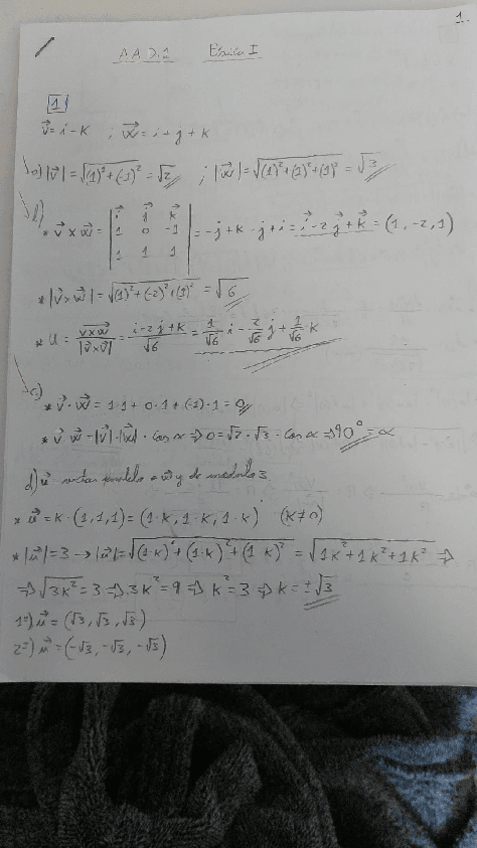 1.
A A D.1 Física I
1
v⃗ = i - k ; w⃗ = i + j + k
a) |v⃗| = √(1)²+(-1)² = √2 ; |w⃗| = √(1)²+(1)²+(1)² = √3
b)
i⃗ j⃗ k⃗
* v⃗ x w⃗ = 1 0 -1 = -j + k - j + i = i⃗ - 2 j⃗ + k⃗ = (1, -2, 1)
1 1 1
* |v⃗ x w⃗| = √(1)²+(-2)²+(1)² = √6
* U = v⃗xw⃗/|v⃗xv⃗| = i-2j+k/√6 = 1/√6 i - 2/√6 j + 1/√6 k
c)
* v⃗ · w⃗ = 1·1 + 0·1 + (-1)·1 = 0
* v⃗ w⃗ = |v⃗| · |w⃗| · cos α ⇒ 0 = √2 · √3 · cos α ⇒ 90° = α
d) u⃗ paralelo a w⃗ y de módulo 3.
* u⃗ = k · (1,1,1) = (1·k, 1·k, 1·k) (k≠0)
* |u⃗| = 3 → |u⃗| = √(1·k)²+(1·k)²+(1·k)² = √1k²+1k²+1k² ⇒
⇒ √3k² = 3 ⇒ 3k² = 9 ⇒ k² = 3 ⇒ k = ±√3
1=) u⃗ = (√3, √3, √3)
2=) u⃗ = (-√3, -√3, -√3)